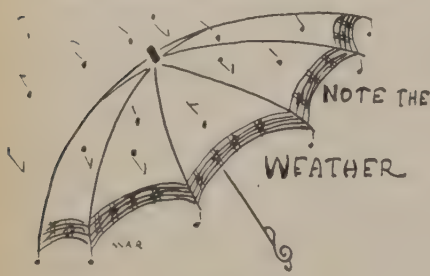 NOTE THE
WEATHER
WAR